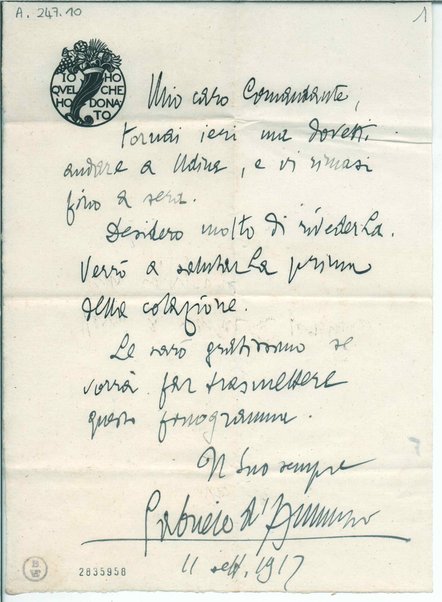 A. 247.10
1
IO HO
QVEL CHE
HO DONA
TO
Mio caro Comandante,
tornai ieri ma dovetti
andare a Udine, e vi rimasi
fino a sera.
Desidero molto di rivederLa.
Verrò a salutarLa prima
della colazione.
Le sarò gratissimo se
vorrà far trasmettere
questo fonogramma.
Il Suo sempre
Gabriele d'Annunzio
11 sett. 1917
2835958